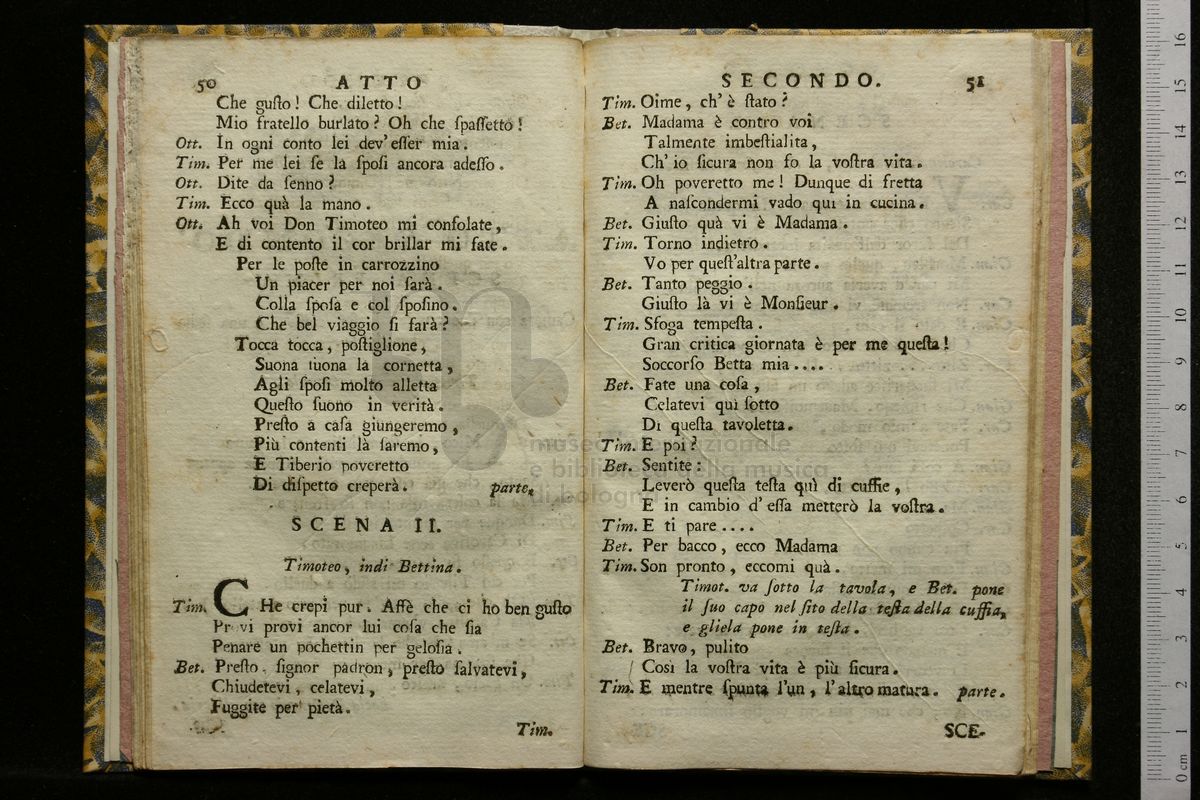 50 ATTO
Che gusto! Che diletto!
Mio fratello burlato? Oh che spassetto!
Ott. In ogni conto lei dev' esser mia.
Tim. Per me lei se la sposi ancora adesso.
Ott. Dite da senno?
Tim. Ecco quà la mano.
Ott. Ah voi Don Timoteo mi consolate,
E di contento il cor brillar mi fate.
Per le poste in carrozzino
Un piacer per noi sarà.
Colla sposa e col sposino.
Che bel viaggio si farà?
Tocca tocca, postiglione,
Suona suona la cornetta,
Agli sposi molto alletta
Questo suono in verità.
Presto a casa giungeremo,
Più contenti là saremo,
E Tiberio poveretto
Di dispetto creperà. parte.
SCENA II.
Timoteo, indi Bettina.
Tim. CHe crepi pur. Affè che ci ho ben gusto
Provi provi ancor lui cosa che sia
Penare un pochettin per gelosia.
Bet. Presto, signor padron, presto salvatevi,
Chiudetevi, celatevi,
Fuggite per pietà.
Tim.
SECONDO. 51
Tim. Oime, ch' è stato?
Bet. Madama è contro voi
Talmente imbestialita,
Ch' io sicura non so la vostra vita.
Tim. Oh poveretto me! Dunque di fretta
A nascondermi vado qui in cucina.
Bet. Giusto quà vi è Madama.
Tim. Torno indietro.
Vo per quest'altra parte.
Bet. Tanto peggio.
Giusto là vi è Monsieur.
Tim. Sfoga tempesta.
Gran critica giornata è per me questa!
Soccorso Betta mia....
Bet. Fate una cosa,
Celatevi quì sotto
Di questa tavoletta.
Tim. E poi?
Bet. Sentite:
Leverò questa testa quì di cuffie,
E in cambio d' essa metterò la vostra.
Tim. E ti pare....
Bet. Per bacco, ecco Madama
Tim. Son pronto, eccomi quà.
Timot. va sotto la tavola, e Bet. pone
il suo capo nel sito della testa della cuffia,
e gliela pone in testa.
Bet. Bravo, pulito
Così la vostra vita è più sicura.
Tim. E mentre spunta l'un, l'altro matura. parte.
SCE-
museo internazionale
e biblioteca della musica
di bologna
0 cm 1 2 3 4 5 6 7 8 9 10 11 12 13 14 15 16